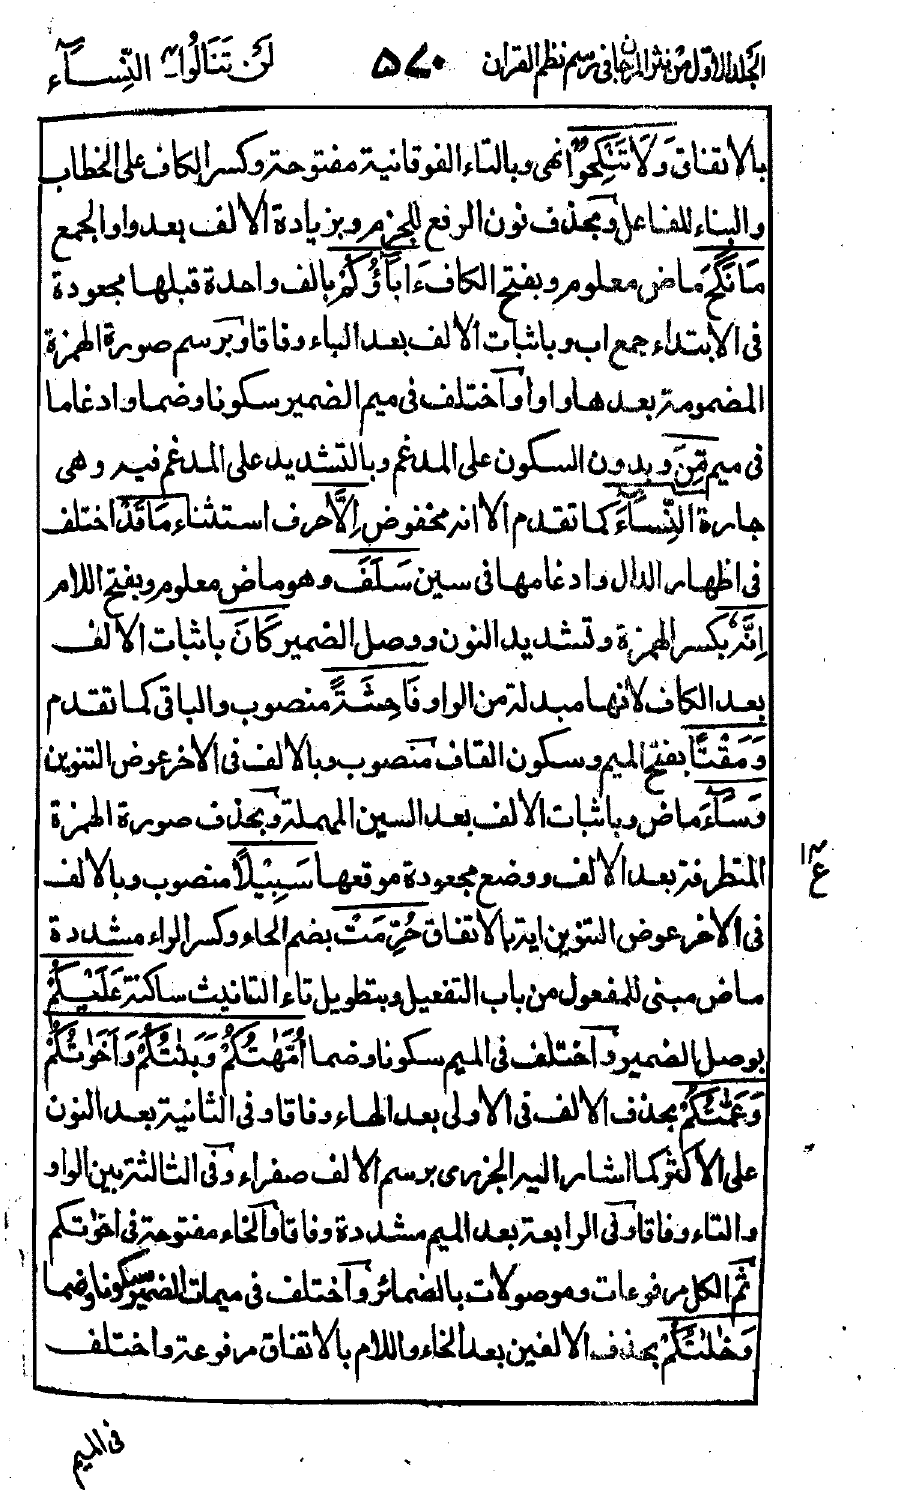 الجلد الاول من نثر المرجان في رسم نظم القران ٥٧٠ لن تنالوا٤ النساء
بالاتفاق وَلَا تَنْكِحُوْا نهى وبالتاء الفوقانية مفتوحة وكسر الكاف على الخطاب
والبناء للفاعل وبحذف نون الرفع للجزم وبزيادة الالف بعد واو الجمع
مَا نَكَحَ ماض معلوم وبفتح الكاف ءَابَآؤُكُمْ بالف واحدة قبلها مجعودة
فى الابتداء جمع اب وباثبات الالف بعد الباء وفاقا وبرسم صورة الهمزة
المضمومة بعدها واوا واختلف فى ميم الضمير سكونا وضما وادغاما
فى ميم مِّنَ وبدون السكون على المدغم وبالتشديد على المدغم فيه وهى
جارة النِّسَآءِ كما تقدم الا انه مخفوض اِلَّا حرف استثناء مَا قَدْ اختلف
فى اظهار الدال وادغامها فى سين سَلَفَ وهو ماض معلوم وبفتح اللام
اِنَّهٗ بكسر الهمزة وتشديد النون ووصل الضمير كَانَ باثبات الالف
بعد الكاف لانها مبدلة من الواو فَاحِشَةً منصوب والباقى كما تقدم
وَمَقْتًا بفتح الميم وسكون القاف منصوب وبالالف فى الاخر عوض التنوين
وَسَآءَ ماض وباثبات الالف بعد السين المهملة وبحذف صورة الهمزة
المتطرفة بعد الالف ووضع مجعودة موقعها سَبِيْلًا منصوب وبالالف
فى الاخر عوض التنوين اية بالاتفاق حُرِّمَتْ بضم الحاء وكسر الراء مشددة
ماض مبنى للمفعول من باب التفعيل وبتطويل تاء التانيث ساكنة عَلَيْكُمْ
بوصل الضمير واختلف فى الميم سكونا وضما اُمَّهٰتُكُمْ وَبَنٰتُكُمْ وَاَخَوٰتُكُمْ
وَعَمّٰتُكُمْ بحذف الالف فى الاولى بعد الهاء وفاقا وفى الثانية بعد النون
على الاكثر كما اشار اليه الجزرى برسم الالف صفراء وفى الثالثة بين الواو
والتاء وفاقا وفى الرابعة بعد الميم مشددة وفاقا والخاء مفتوحة فى اخوٰتكم
ثم الكل مرفوعات وموصولات بالضمائر واختلف فى ميمات الضمير سكونا وضما
وَخٰلٰتُكُمْ بحذف الالفين بعد الخاء واللام بالاتفاق مرفوعة واختلف
فى الميم